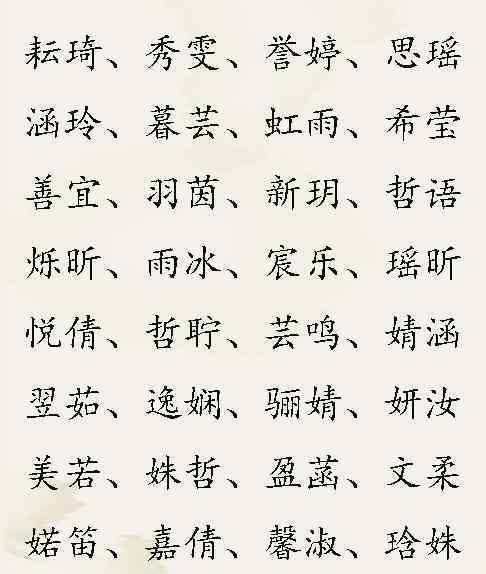 耘琦、秀雯、誉婷、思瑶
涵玲、暮芸、虹雨、希莹
善宜、羽茵、新玥、哲语
烁昕、雨冰、宸乐、瑶昕
悦倩、哲聍、芸鸣、婧涵
翌茹、逸娴、骊婧、妍汝
美若、姝哲、盈菡、文柔
婼笛、嘉倩、馨淑、琀姝